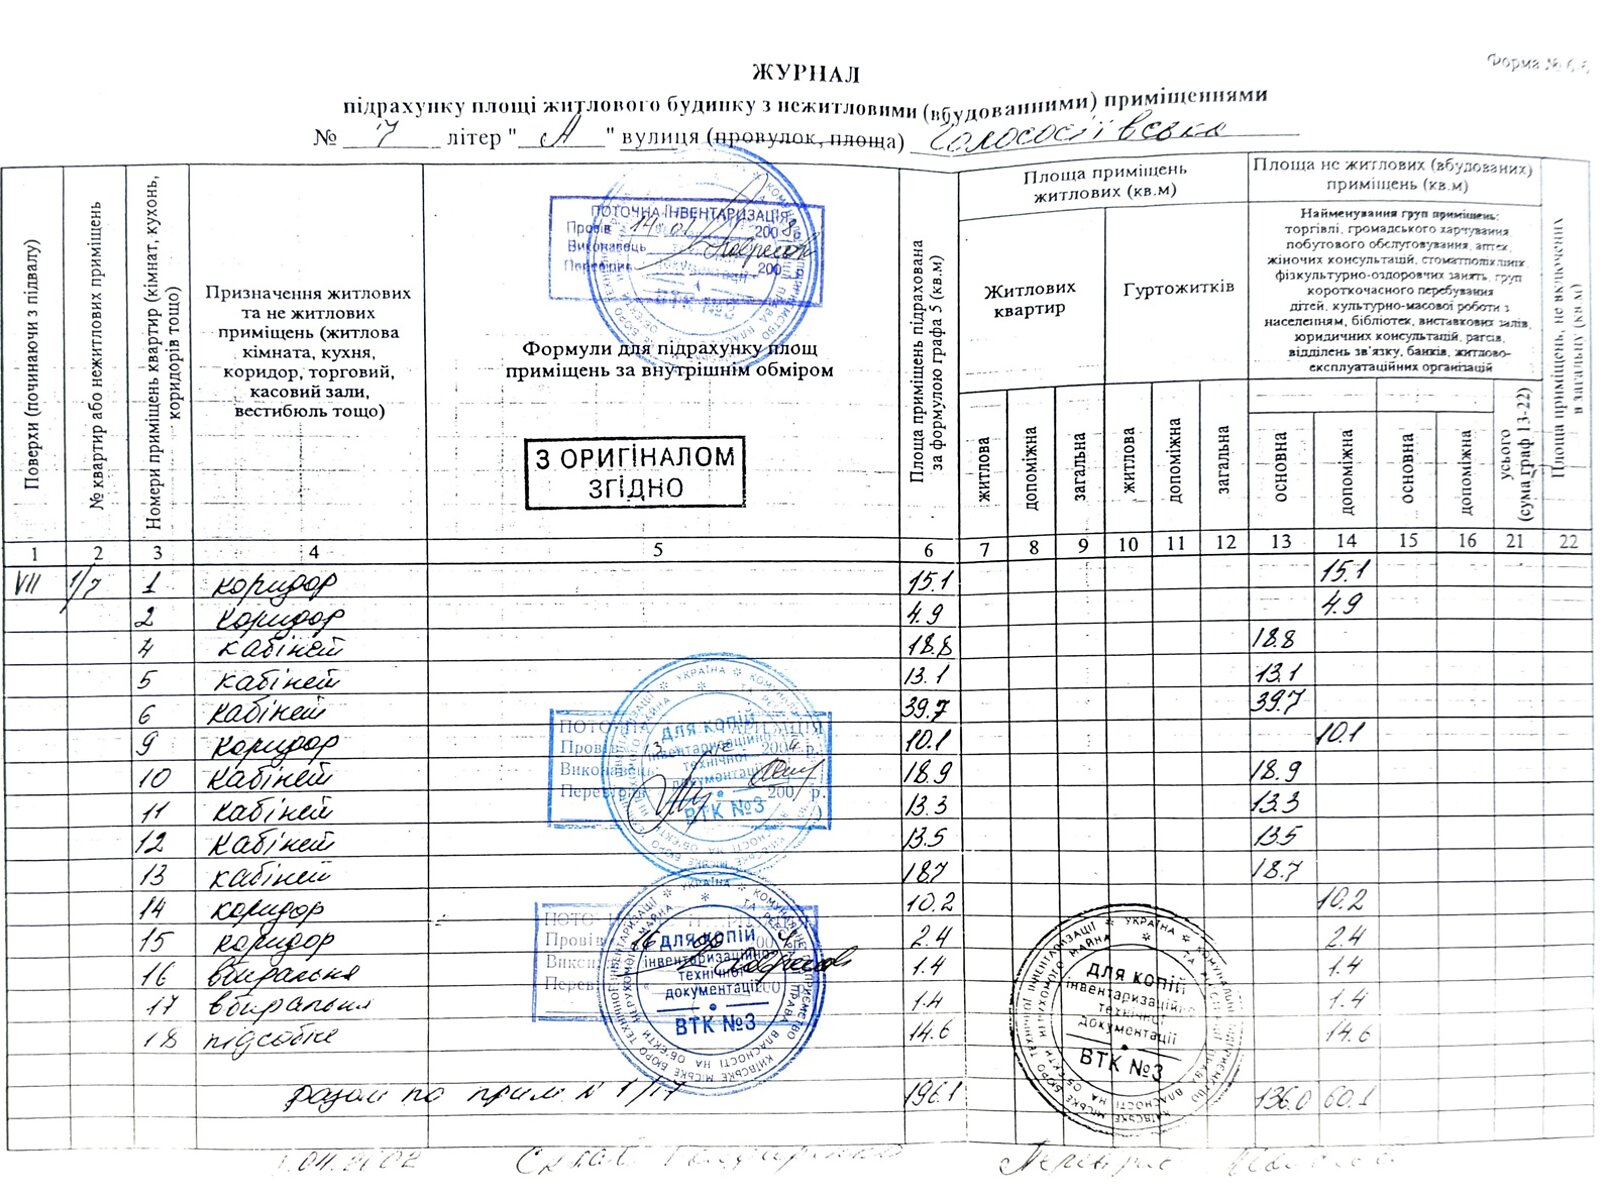 Форма № 6.6
ЖУРНАЛ
підрахунку площі житлового будинку з нежитловими (вбудованними) приміщеннями
№ 7 літер " А " вулиця (провулок, площа) Голосоєіївська
Поверхи (починаючи з підвалу)
№ квартир або нежитлових приміщень
Номери приміщень квартир (кімнат, кухонь, коридорів тощо)
Призначення житлових
та не житлових
приміщень (житлова
кімната, кухня,
коридор, торговий,
касовий зали,
вестибюль тощо)
ПОТОЧНА ІНВЕНТАРИЗАЦІЯ
Провів 14 01 2008 р.
Виконавець
Перевірив 200 р.
Формули для підрахунку площ
приміщень за внутрішнім обміром
З ОРИГІНАЛОМ
ЗГІДНО
Площа приміщень підрахована
за формулою графа 5 (кв.м)
Площа приміщень
житлових (кв.м)
Житлових
квартир
Гуртожитків
житлова
допоміжна
загальна
житлова
допоміжна
загальна
Площа не житлових (вбудованих)
приміщень (кв.м)
Найменування груп приміщень:
торгівлі, громадського харчування
побутового обслуговування, аптек,
жіночих консультацій, стоматполіклінік
фізкультурно-оздоровчих занять, груп
короткочасного перебування
дітей, культурно-масової роботи з
населенням, бібліотек, виставкових залів,
юридичних консультацій, рагсів,
відділень зв'язку, банків, житлово-
експлуатаційних організацій
основна
допоміжна
основна
допоміжна
усього
(сума граф 13-22)
Площа приміщень, не включених
в загальну (кв м)
1 2 3 4 5 6 7 8 9 10 11 12 13 14 15 16 21 22
VII 1/7 1 коридор 15.1 15.1
2 коридор 4.9 4.9
4 кабінет 18.8 18.8
5 кабінет 13.1 13.1
6 кабінет 39.7 39.7
9 коридор 10.1 10.1
10 кабінет 18.9 18.9
11 кабінет 13.3 13.3
12 кабінет 13.5 13.5
13 кабінет 18.7 18.7
14 коридор 10.2 10.2
15 коридор 2.4 2.4
16 вбиральня 1.4 1.4
17 вбиральня 1.4 1.4
18 підсобне 14.6 14.6
разом по прим. № 1/17 196.1 136.0 60.1
Провів
Виконавець
Перевірив 200 р.
ДЛЯ КОПІЙ
інвентаризаційно
технічної
документації
ВТК №3
УКРАЇНА
ДЛЯ КОПІЙ
інвентаризаційно
технічної
документації
ВТК №3
УКРАЇНА
ДЛЯ КОПІЙ
інвентаризаційно
технічної
документації
ВТК №3
УКРАЇНА